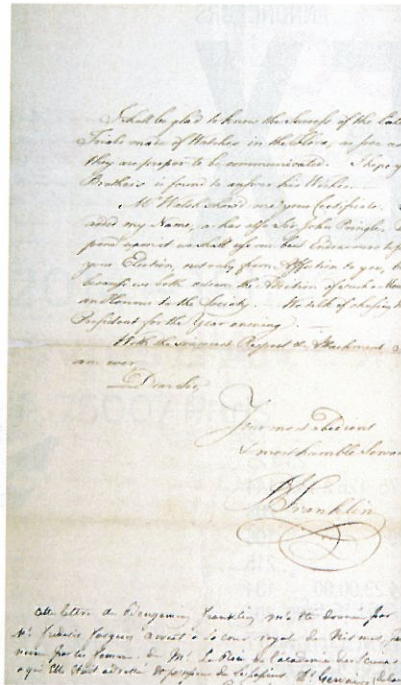 I shall be glad to know the Success of the late
Trials made of Watches in the Flora, as far as
they are proper to be communicated. I hope y
Brother's is found to answer his Wishes.
Mr Walsh show'd me your Certificate.
added my Name, as has also Sir John Pringle.
pend upon it we shall use our best Endeavours to p
your Election, not only from Affection to you, b
because we both esteem the Election of such a Mem
an Honour to the Society. We talk of chusing
President for the Year ensuing.
With the sincerest Respect & Attachment
am ever
Dear Sir,
Your most obedient
& most humble Serva
B Franklin
lettre de Benjamin Franklin m'a été donnée par
Mr. avocat à la cour royal de Nismes,
par les de Mr Le Roi de l'academie des Sciences
a qui elle était adressée